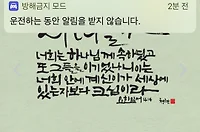 방해금지 모드
2분 전
운전하는 동안 알림을 받지 않습니다.
너희는 하나님께 속하였고
또 그들을 이기었나니 이는
너희 안에 계신 이가 세상에
있는 자보다 크심이라